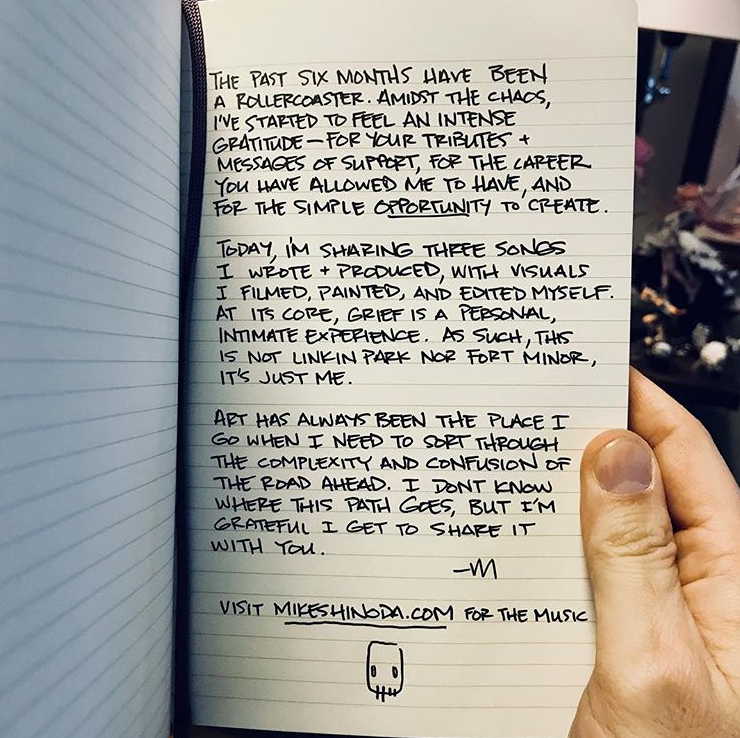 THE PAST SIX MONTHS HAVE BEEN
A ROLLERCOASTER. AMIDST THE CHAOS,
I'VE STARTED TO FEEL AN INTENSE
GRATITUDE—FOR YOUR TRIBUTES +
MESSAGES OF SUPPORT, FOR THE CAREER
YOU HAVE ALLOWED ME TO HAVE, AND
FOR THE SIMPLE OPPORTUNITY TO CREATE.
TODAY, I'M SHARING THREE SONGS
I WROTE + PRODUCED, WITH VISUALS
I FILMED, PAINTED, AND EDITED MYSELF.
AT ITS CORE, GRIEF IS A PERSONAL,
INTIMATE EXPERIENCE. AS SUCH, THIS
IS NOT LINKIN PARK NOR FORT MINOR,
IT'S JUST ME.
ART HAS ALWAYS BEEN THE PLACE I
GO WHEN I NEED TO SORT THROUGH
THE COMPLEXITY AND CONFUSION OF
THE ROAD AHEAD. I DONT KNOW
WHERE THIS PATH GOES, BUT I'M
GRATEFUL I GET TO SHARE IT
WITH YOU.
—M
VISIT MIKESHINODA.COM FOR THE MUSIC